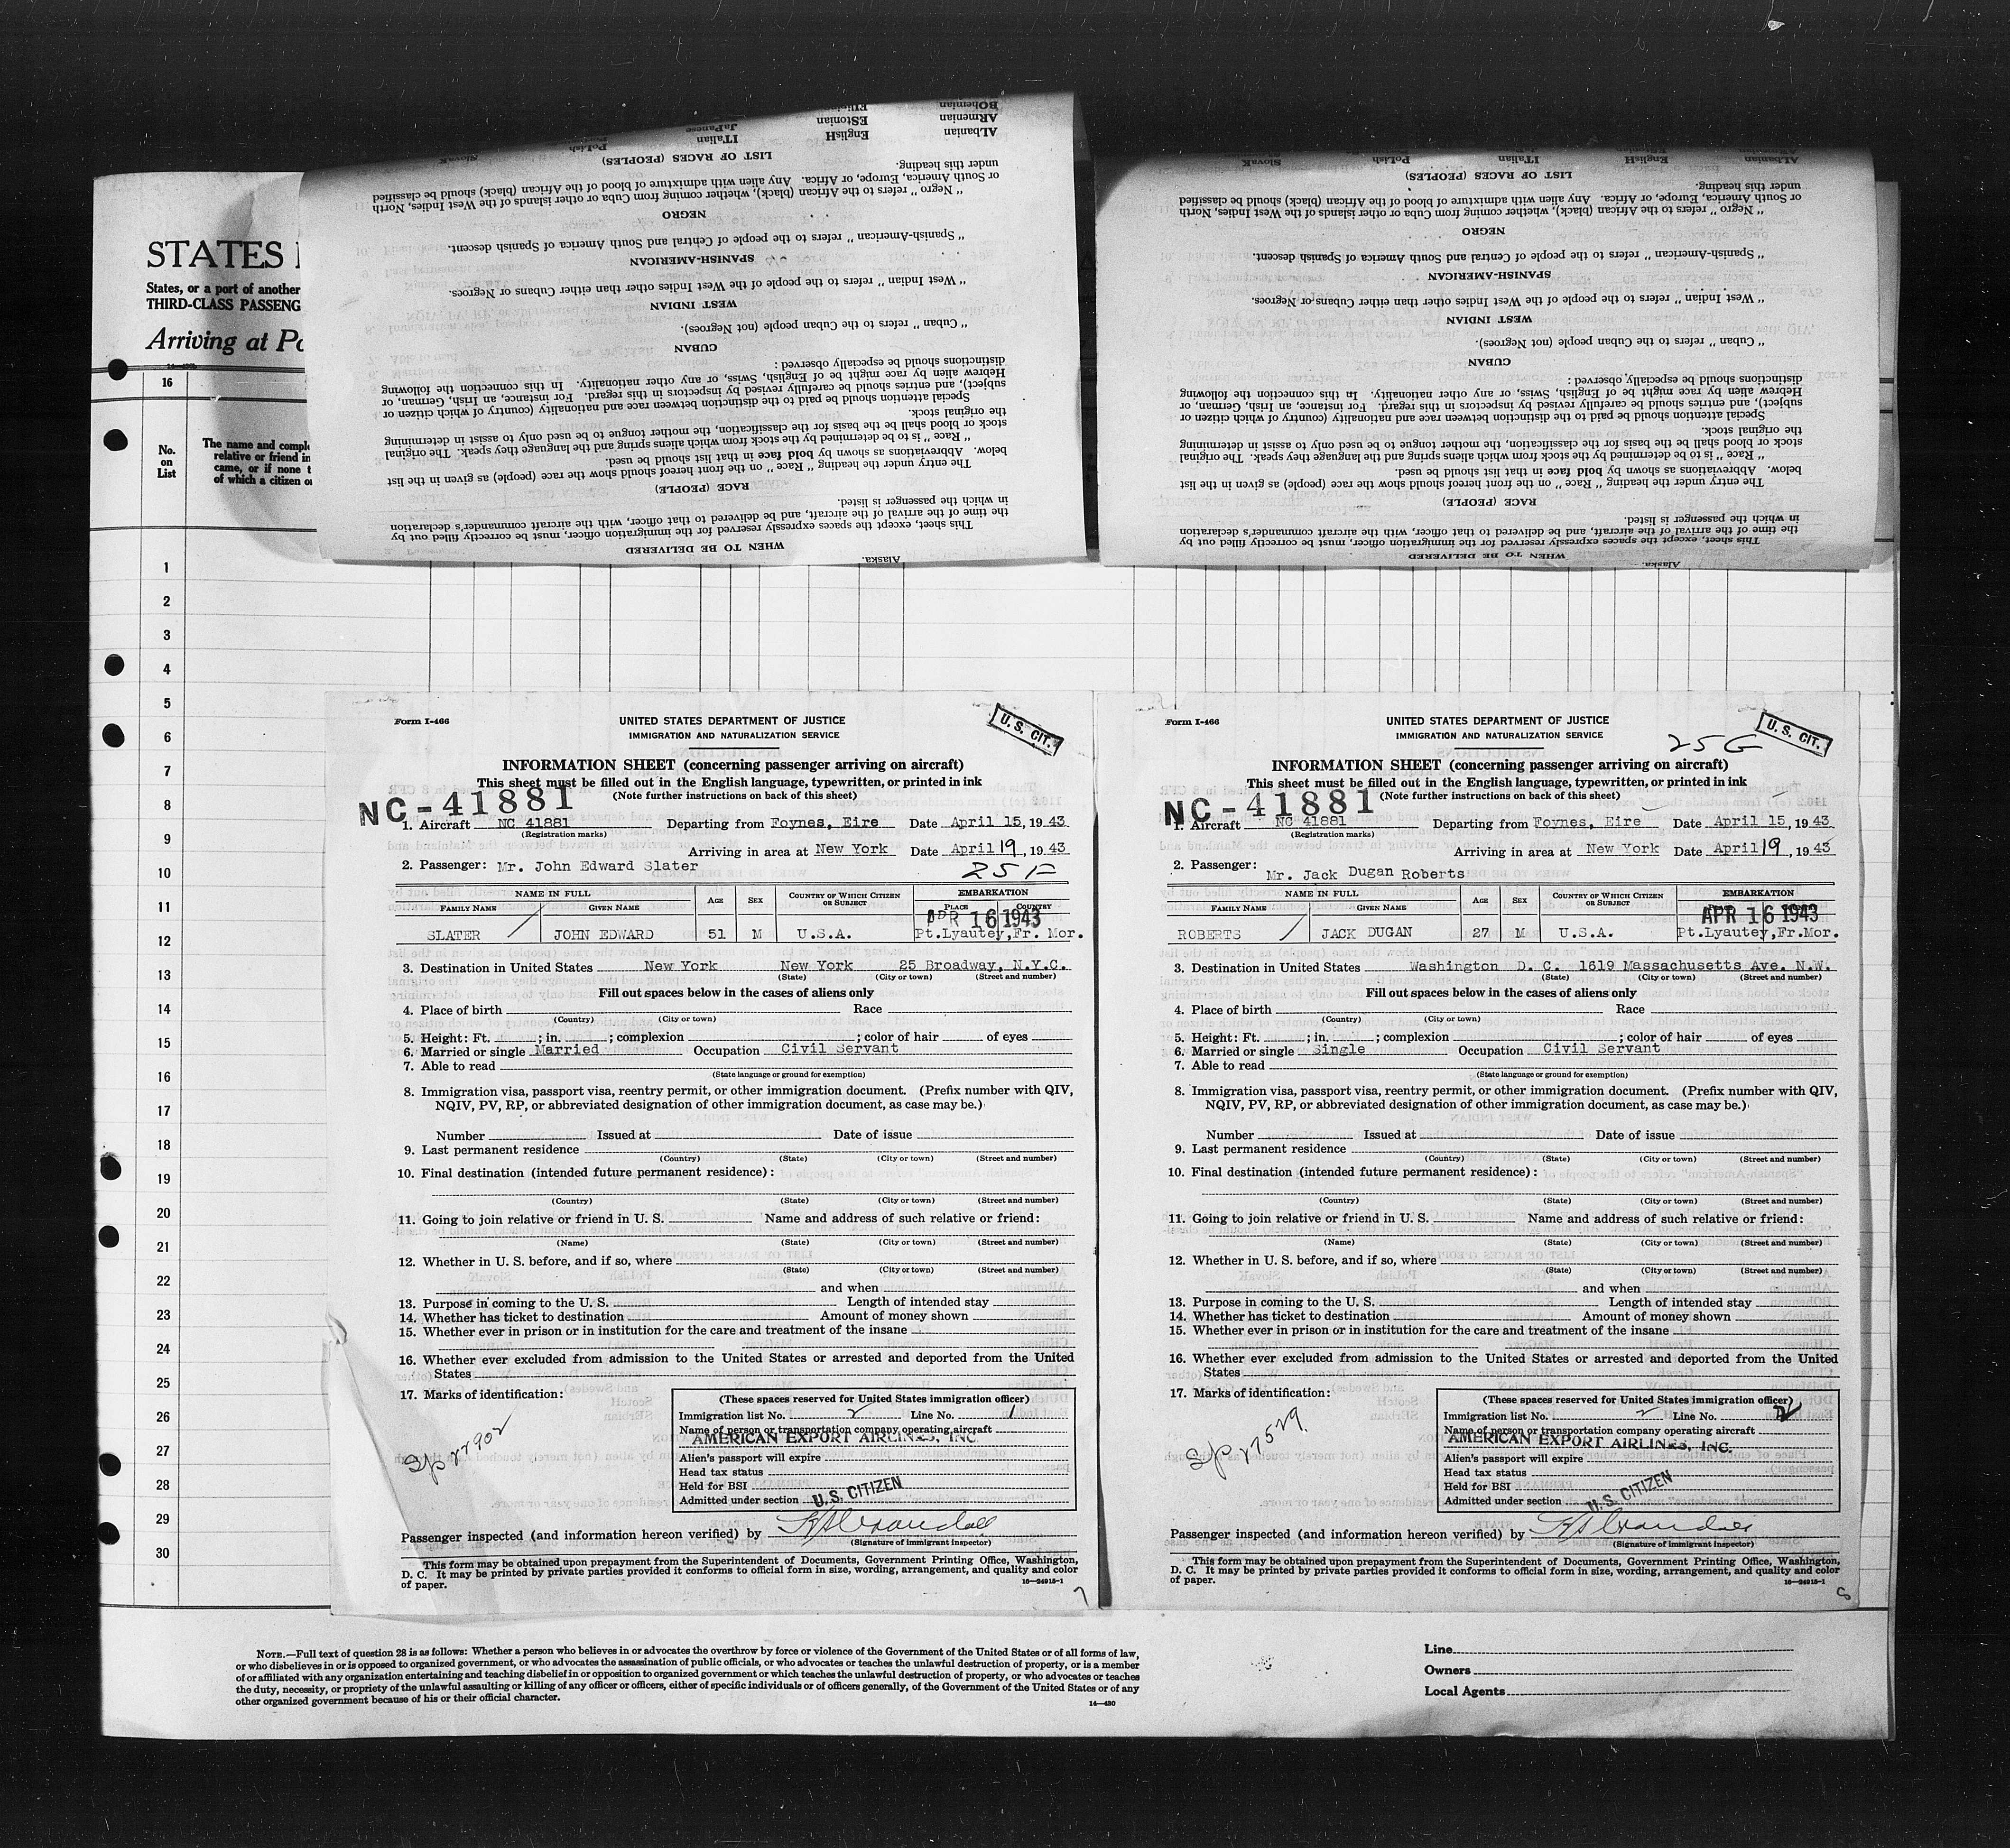 STATES
States, or a port of another
THIRD-CLASS PASSENG
Arriving at Po
16
No.
on
List
The name and compl
relative or friend in
came, or if none t
of which a citizen o
1
2
3
4
5
6
7
8
9
10
11
12
13
14
15
16
17
18
19
20
21
22
23
24
25
26
27
28
29
30
Alaska.
WHEN TO BE DELIVERED
This sheet, except the spaces expressly reserved for the immigration officer, must be correctly filled out by
the time of the arrival of the aircraft, and be delivered to that officer, with the aircraft commander's declaration
in which the passenger is listed.
RACE (PEOPLE)
The entry under the heading "Race" on the front hereof should show the race (people) as given in the list
below. Abbreviations as shown by bold face in that list should be used.
"Race" is to be determined by the stock from which aliens spring and the language they speak. The original
stock or blood shall be the basis for the classification, the mother tongue to be used only to assist in determining
the original stock.
Special attention should be paid to the distinction between race and nationality (country of which citizen or
subject), and entries should be carefully revised by inspectors in this regard. For instance, an Irish, German, or
Hebrew alien by race might be of English, Swiss, or any other nationality. In this connection the following
distinctions should be especially observed:
CUBAN
"Cuban" refers to the Cuban people (not Negroes).
WEST INDIAN
"West Indian" refers to the people of the West Indies other than either Cubans or Negroes.
SPANISH-AMERICAN
"Spanish-American" refers to the people of Central and South America of Spanish descent.
NEGRO
"Negro" refers to the African (black), whether coming from Cuba or other islands of the West Indies, North
or South America, Europe, or Africa. Any alien with admixture of blood of the African (black) should be classified
under this heading.
LIST OF RACES (PEOPLES)
ALbanian EnglisH ITalian PoLish SlovaK
ARmenian EStonian JaPanese
BOhemian
Alaska.
WHEN TO BE DELIVERED
This sheet, except the spaces expressly reserved for the immigration officer, must be correctly filled out by
the time of the arrival of the aircraft, and be delivered to that officer, with the aircraft commander's declaration
in which the passenger is listed.
RACE (PEOPLE)
The entry under the heading "Race" on the front hereof should show the race (people) as given in the list
below. Abbreviations as shown by bold face in that list should be used.
"Race" is to be determined by the stock from which aliens spring and the language they speak. The original
stock or blood shall be the basis for the classification, the mother tongue to be used only to assist in determining
the original stock.
Special attention should be paid to the distinction between race and nationality (country of which citizen or
subject), and entries should be carefully revised by inspectors in this regard. For instance, an Irish, German, or
Hebrew alien by race might be of English, Swiss, or any other nationality. In this connection the following
distinctions should be especially observed:
CUBAN
"Cuban" refers to the Cuban people (not Negroes).
WEST INDIAN
"West Indian" refers to the people of the West Indies other than either Cubans or Negroes.
SPANISH-AMERICAN
"Spanish-American" refers to the people of Central and South America of Spanish descent.
NEGRO
"Negro" refers to the African (black), whether coming from Cuba or other islands of the West Indies, North
or South America, Europe, or Africa. Any alien with admixture of blood of the African (black) should be classified
under this heading.
LIST OF RACES (PEOPLES)
ALbanian EnglisH ITalian PoLish SlovaK
Form I-466
UNITED STATES DEPARTMENT OF JUSTICE
IMMIGRATION AND NATURALIZATION SERVICE
U. S. CIT.
INFORMATION SHEET (concerning passenger arriving on aircraft)
This sheet must be filled out in the English language, typewritten, or printed in ink
(Note further instructions on back of this sheet)
NC-41881
1. Aircraft NC 41881 Departing from Foynes, Eire Date April 15, 1943
(Registration marks)
Arriving in area at New York Date April 19, 1943
2. Passenger: Mr. John Edward Slater
25 F
NAME IN FULL AGE SEX COUNTRY OF WHICH CITIZEN OR SUBJECT EMBARKATION
FAMILY NAME GIVEN NAME PLACE COUNTRY
APR 16 1943
SLATER JOHN EDWARD 51 M U.S.A. Pt.Lyautey,Fr. Mor.
3. Destination in United States New York New York 25 Broadway, N.Y.C.
(State) (City or town) (Street and number)
Fill out spaces below in the cases of aliens only
4. Place of birth Race
(Country) (City or town)
5. Height: Ft. ; in. ; complexion ; color of hair of eyes
6. Married or single Married Occupation Civil Servant
7. Able to read
(State language or ground for exemption)
8. Immigration visa, passport visa, reentry permit, or other immigration document. (Prefix number with QIV,
NQIV, PV, RP, or abbreviated designation of other immigration document, as case may be.)
Number Issued at Date of issue
9. Last permanent residence
(Country) (State) (City or town) (Street and number)
10. Final destination (intended future permanent residence):
(Country) (State) (City or town) (Street and number)
11. Going to join relative or friend in U. S. Name and address of such relative or friend:
(Name) (State) (City or town) (Street and number)
12. Whether in U. S. before, and if so, where
(State) (City or town) (Street and number)
and when
13. Purpose in coming to the U. S. Length of intended stay
14. Whether has ticket to destination Amount of money shown
15. Whether ever in prison or in institution for the care and treatment of the insane
16. Whether ever excluded from admission to the United States or arrested and deported from the United
States
17. Marks of identification:
Sp 27902
(These spaces reserved for United States immigration officer)
Immigration list No. 2 Line No. 1
Name of person or transportation company operating aircraft
AMERICAN EXPORT AIRLINES, INC.
Alien's passport will expire
Head tax status
Held for BSI
Admitted under section U. S. CITIZEN
Passenger inspected (and information hereon verified) by
(Signature of immigrant inspector)
This form may be obtained upon prepayment from the Superintendent of Documents, Government Printing Office, Washington,
D. C. It may be printed by private parties provided it conforms to official form in size, wording, arrangement, and quality and color
of paper.
16—24915-1
7
Form I-466
UNITED STATES DEPARTMENT OF JUSTICE
IMMIGRATION AND NATURALIZATION SERVICE
25 G
U. S. CIT.
INFORMATION SHEET (concerning passenger arriving on aircraft)
This sheet must be filled out in the English language, typewritten, or printed in ink
(Note further instructions on back of this sheet)
NC-41881
1. Aircraft NC 41881 Departing from Foynes, Eire Date April 15, 1943
(Registration marks)
Arriving in area at New York Date April 19, 1943
2. Passenger: Mr. Jack Dugan Roberts
NAME IN FULL AGE SEX COUNTRY OF WHICH CITIZEN OR SUBJECT EMBARKATION
FAMILY NAME GIVEN NAME
APR 16 1943
ROBERTS JACK DUGAN 27 M U.S.A. Pt.Lyautey,Fr.Mor.
3. Destination in United States Washington D. C. 1619 Massachusetts Ave. N.W.
(State) (City or town) (Street and number)
Fill out spaces below in the cases of aliens only
4. Place of birth Race
(Country) (City or town)
5. Height: Ft. ; in. ; complexion ; color of hair of eyes
6. Married or single Single Occupation Civil Servant
7. Able to read
(State language or ground for exemption)
8. Immigration visa, passport visa, reentry permit, or other immigration document. (Prefix number with QIV,
NQIV, PV, RP, or abbreviated designation of other immigration document, as case may be.)
Number Issued at Date of issue
9. Last permanent residence
(Country) (State) (City or town) (Street and number)
10. Final destination (intended future permanent residence):
(Country) (State) (City or town) (Street and number)
11. Going to join relative or friend in U. S. Name and address of such relative or friend:
(Name) (State) (City or town) (Street and number)
12. Whether in U. S. before, and if so, where
(State) (City or town) (Street and number)
and when
13. Purpose in coming to the U. S. Length of intended stay
14. Whether has ticket to destination Amount of money shown
15. Whether ever in prison or in institution for the care and treatment of the insane
16. Whether ever excluded from admission to the United States or arrested and deported from the United
States
17. Marks of identification:
Sp 27529
(These spaces reserved for United States immigration officer)
Immigration list No. 2 Line No. 2
Name of person or transportation company operating aircraft
AMERICAN EXPORT AIRLINES, INC.
Alien's passport will expire
Head tax status
Held for BSI
Admitted under section U. S. CITIZEN
Passenger inspected (and information hereon verified) by
(Signature of immigrant inspector)
This form may be obtained upon prepayment from the Superintendent of Documents, Government Printing Office, Washington,
D. C. It may be printed by private parties provided it conforms to official form in size, wording, arrangement, and quality and color
of paper.
16—24915-1
8
NOTE.—Full text of question 28 is as follows: Whether a person who believes in or advocates the overthrow by force or violence of the Government of the United States or of all forms of law,
or who disbelieves in or is opposed to organized government, or who advocates the assassination of public officials, or who advocates or teaches the unlawful destruction of property, or is a member
of or affiliated with any organization entertaining and teaching disbelief in or opposition to organized government or which teaches the unlawful destruction of property, or who advocates or teaches
the duty, necessity, or propriety of the unlawful assaulting or killing of any officer or officers, either of specific individuals or of officers generally, of the Government of the United States or of any
other organized government because of his or their official character.
14—430
Line
Owners
Local Agents